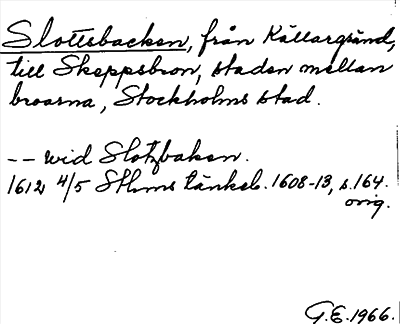 Slottsbacken, från Källargränd,
till Skeppsbron, staden mellan
broarna, Stockholms stad.
-- wid Slotzbaken.
1612 4/5 Sthms tänkeb. 1608-13, s.164.
orig.
G.E.1966.